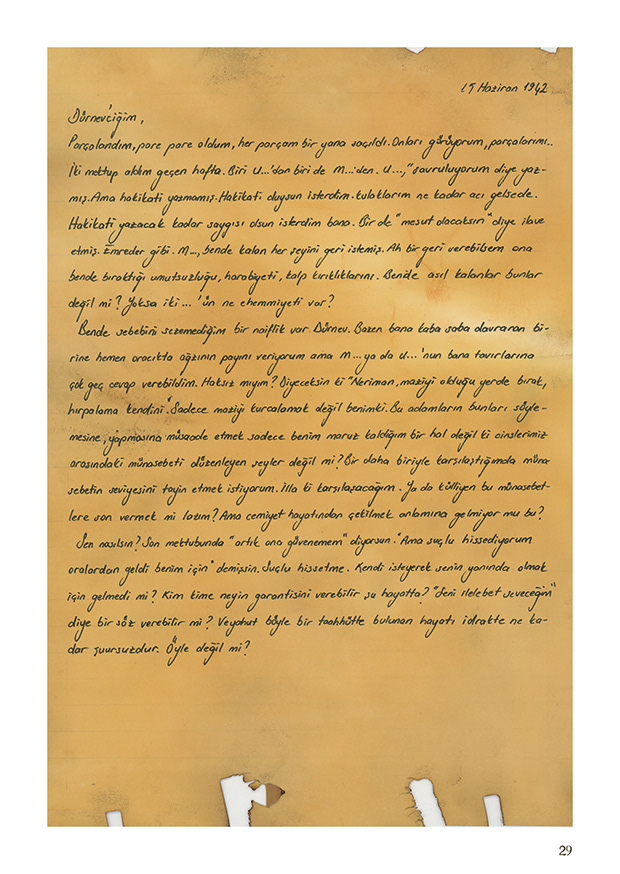 15 Haziran 1942
Dürnev'ciğim,
Parçalandım, pare pare oldum, her parçam bir yana saçıldı. Onları görüyorum, parçalarımı..
İki mektup aldım geçen hafta. Biri U...'dan biri de M...'den. U..., "savruluyorum diye yaz-
mış. Ama hakikati yazmamış. Hakikati duysun isterdim kulaklarım ne kadar acı gelsede.
Hakikati yazacak kadar saygısı olsun isterdim bana. Bir de "mesut olacaksın" diye ilave
etmiş. Emreder gibi. M..., bende kalan her şeyini geri istemiş. Ah bir geri verebilsem ona
bende bıraktığı umutsuzluğu, harabiyeti, kalp kırıklıklarını. Bende asıl kalanlar bunlar
değil mi? Yoksa iki ...'ün ne ehemmiyeti var?
Bende sebebini sezemediğim bir naiflik var Dürnev. Bazen bana kaba saba davranan bi-
rine hemen oracıkta ağzının payını veriyorum ama M... ya da U...'nun bana tavırlarına
çok geç cevap verebildim. Haksız mıyım? Diyeceksin ki "Neriman, maziyi olduğu yerde bırak,
hırpalama kendini". Sadece maziyi kurcalamak değil benimki. Bu adamların bunları söyle-
mesine, yapmasına müsaade etmek sadece benim maruz kaldığım bir hal değil ki cinslerimiz
arasındaki münasebeti düzenleyen şeyler değil mi? Bir daha biriyle karşılaştığımda müna-
sebetin seviyesini tayin etmek istiyorum. İlla ki karşılaşacağım. Ya da külliyen bu münasebet-
lere son vermek mi lazım? Ama cemiyet hayatından çekilmek anlamına gelmiyor mu bu?
Sen nasılsın? Son mektubunda "artık ona güvenemem" diyorsun. "Ama suçlu hissediyorum
oralardan geldi benim için" demişsin. Suçlu hissetme. Kendi isteyerek senin yanında olmak
için gelmedi mi? Kim kime neyin garantisini verebilir şu hayatta? "Seni ilelebet seveceğim"
diye bir söz verebilir mi? Veyahut böyle bir taahhütte bulunan hayatı idrakte ne ka-
dar şuursuzdur. Öyle değil mi?
29